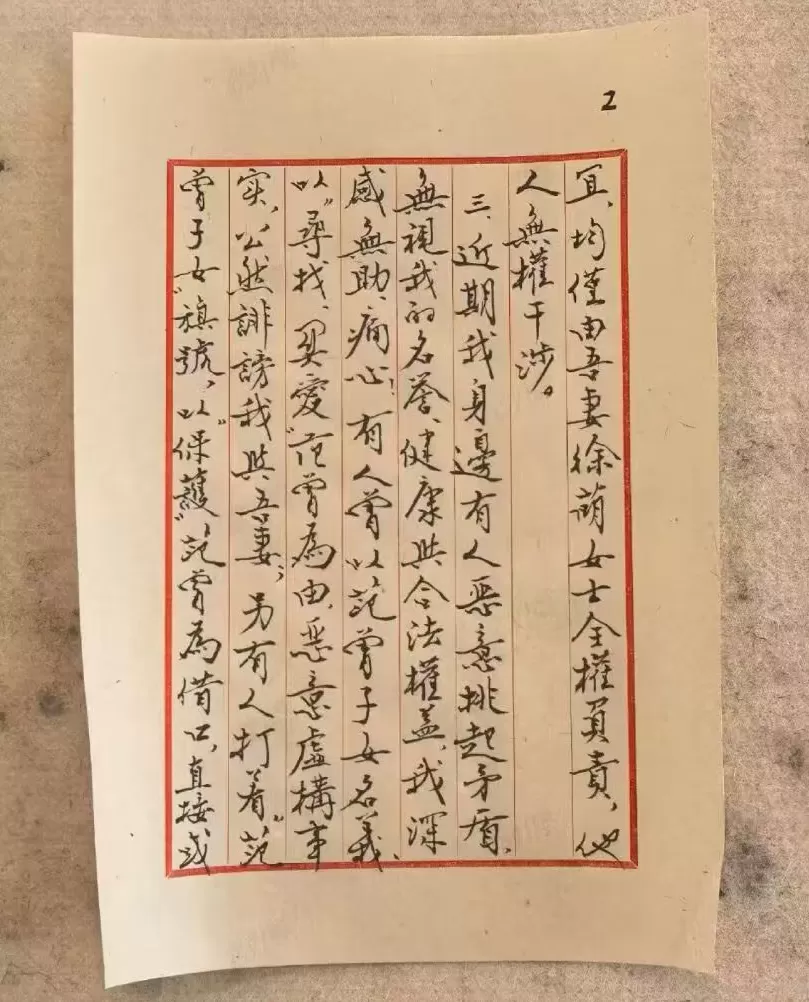 2
宜、均僅由吾妻徐萌女士全權負責，他
人無權干涉。
三、近期我身邊有人惡意挑起矛盾、
無視我的名譽、健康與合法權益，我深
感無助、痛心！有人曾以范曾子女名義、
以“尋找、關愛”范曾為由，惡意虛構事
实，公然誹謗我與吾妻；另有人打着“范
曾子女”旗號，以“保護”范曾為借口，直接或